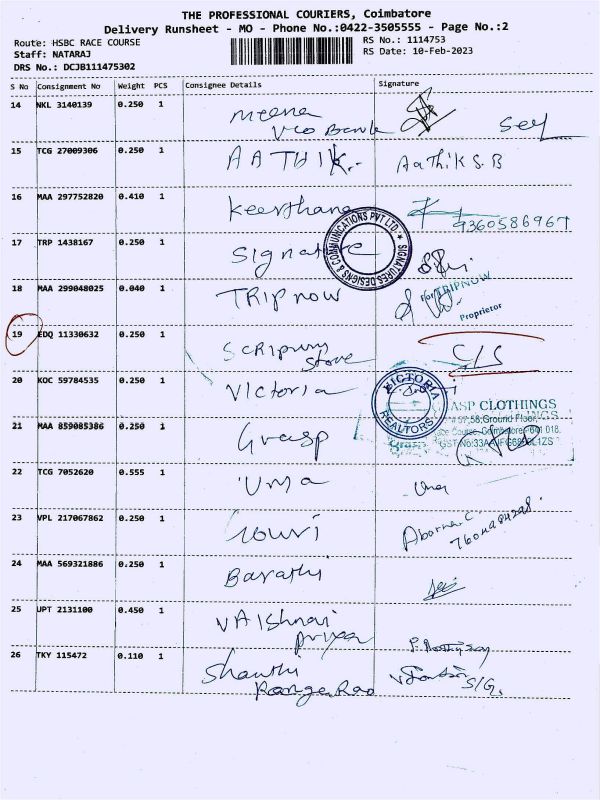 THE PROFESSIONAL COURIERS, Coimbatore
Delivery Runsheet - MO - Phone No.:0422-3505555 - Page No.:2
Route: HSBC RACE COURSE
RS No.: 1114753
Staff: NATARAJ
RS Date: 10-Feb-2023
DRS No.: DCJB111475302
S No Consignment No Weight PCS Consignee Details Signature
14 NKL 3140139 0.250 1 meena
Vco Bank
15 TCG 27009306 0.250 1 AATHIK.- Aathik S.B
16 MAA 297752820 0.410 1 Keerthana
9360586967
17 TRP 1438167 0.250 1 Signature
SIGNATURES DESIGNS & COMMUNICATIONS PVT LTD.
18 MAA 299048025 0.040 1 TRIPNOW For TRIPNOW
Proprietor
19 EDQ 11330632 0.250 1 Store C/S
20 KOC 59784535 0.250 1 Victoria
VICTORIA REALTORS
ASP CLOTHINGS
Ground Floor,
21 MAA 859085386 0.250 1 Grasp
Coimbatore-641 018.
22 TCG 7052620 0.555 1 Uma Uma
23 VPL 217067862 0.250 1 Gouri Aborna.C
24 MAA 569321886 0.250 1 Barathi
25 UPT 2131100 0.450 1 VAIShnavi
priya
26 TKY 115472 0.110 1 Shanthi
Ranga Rao S/G.